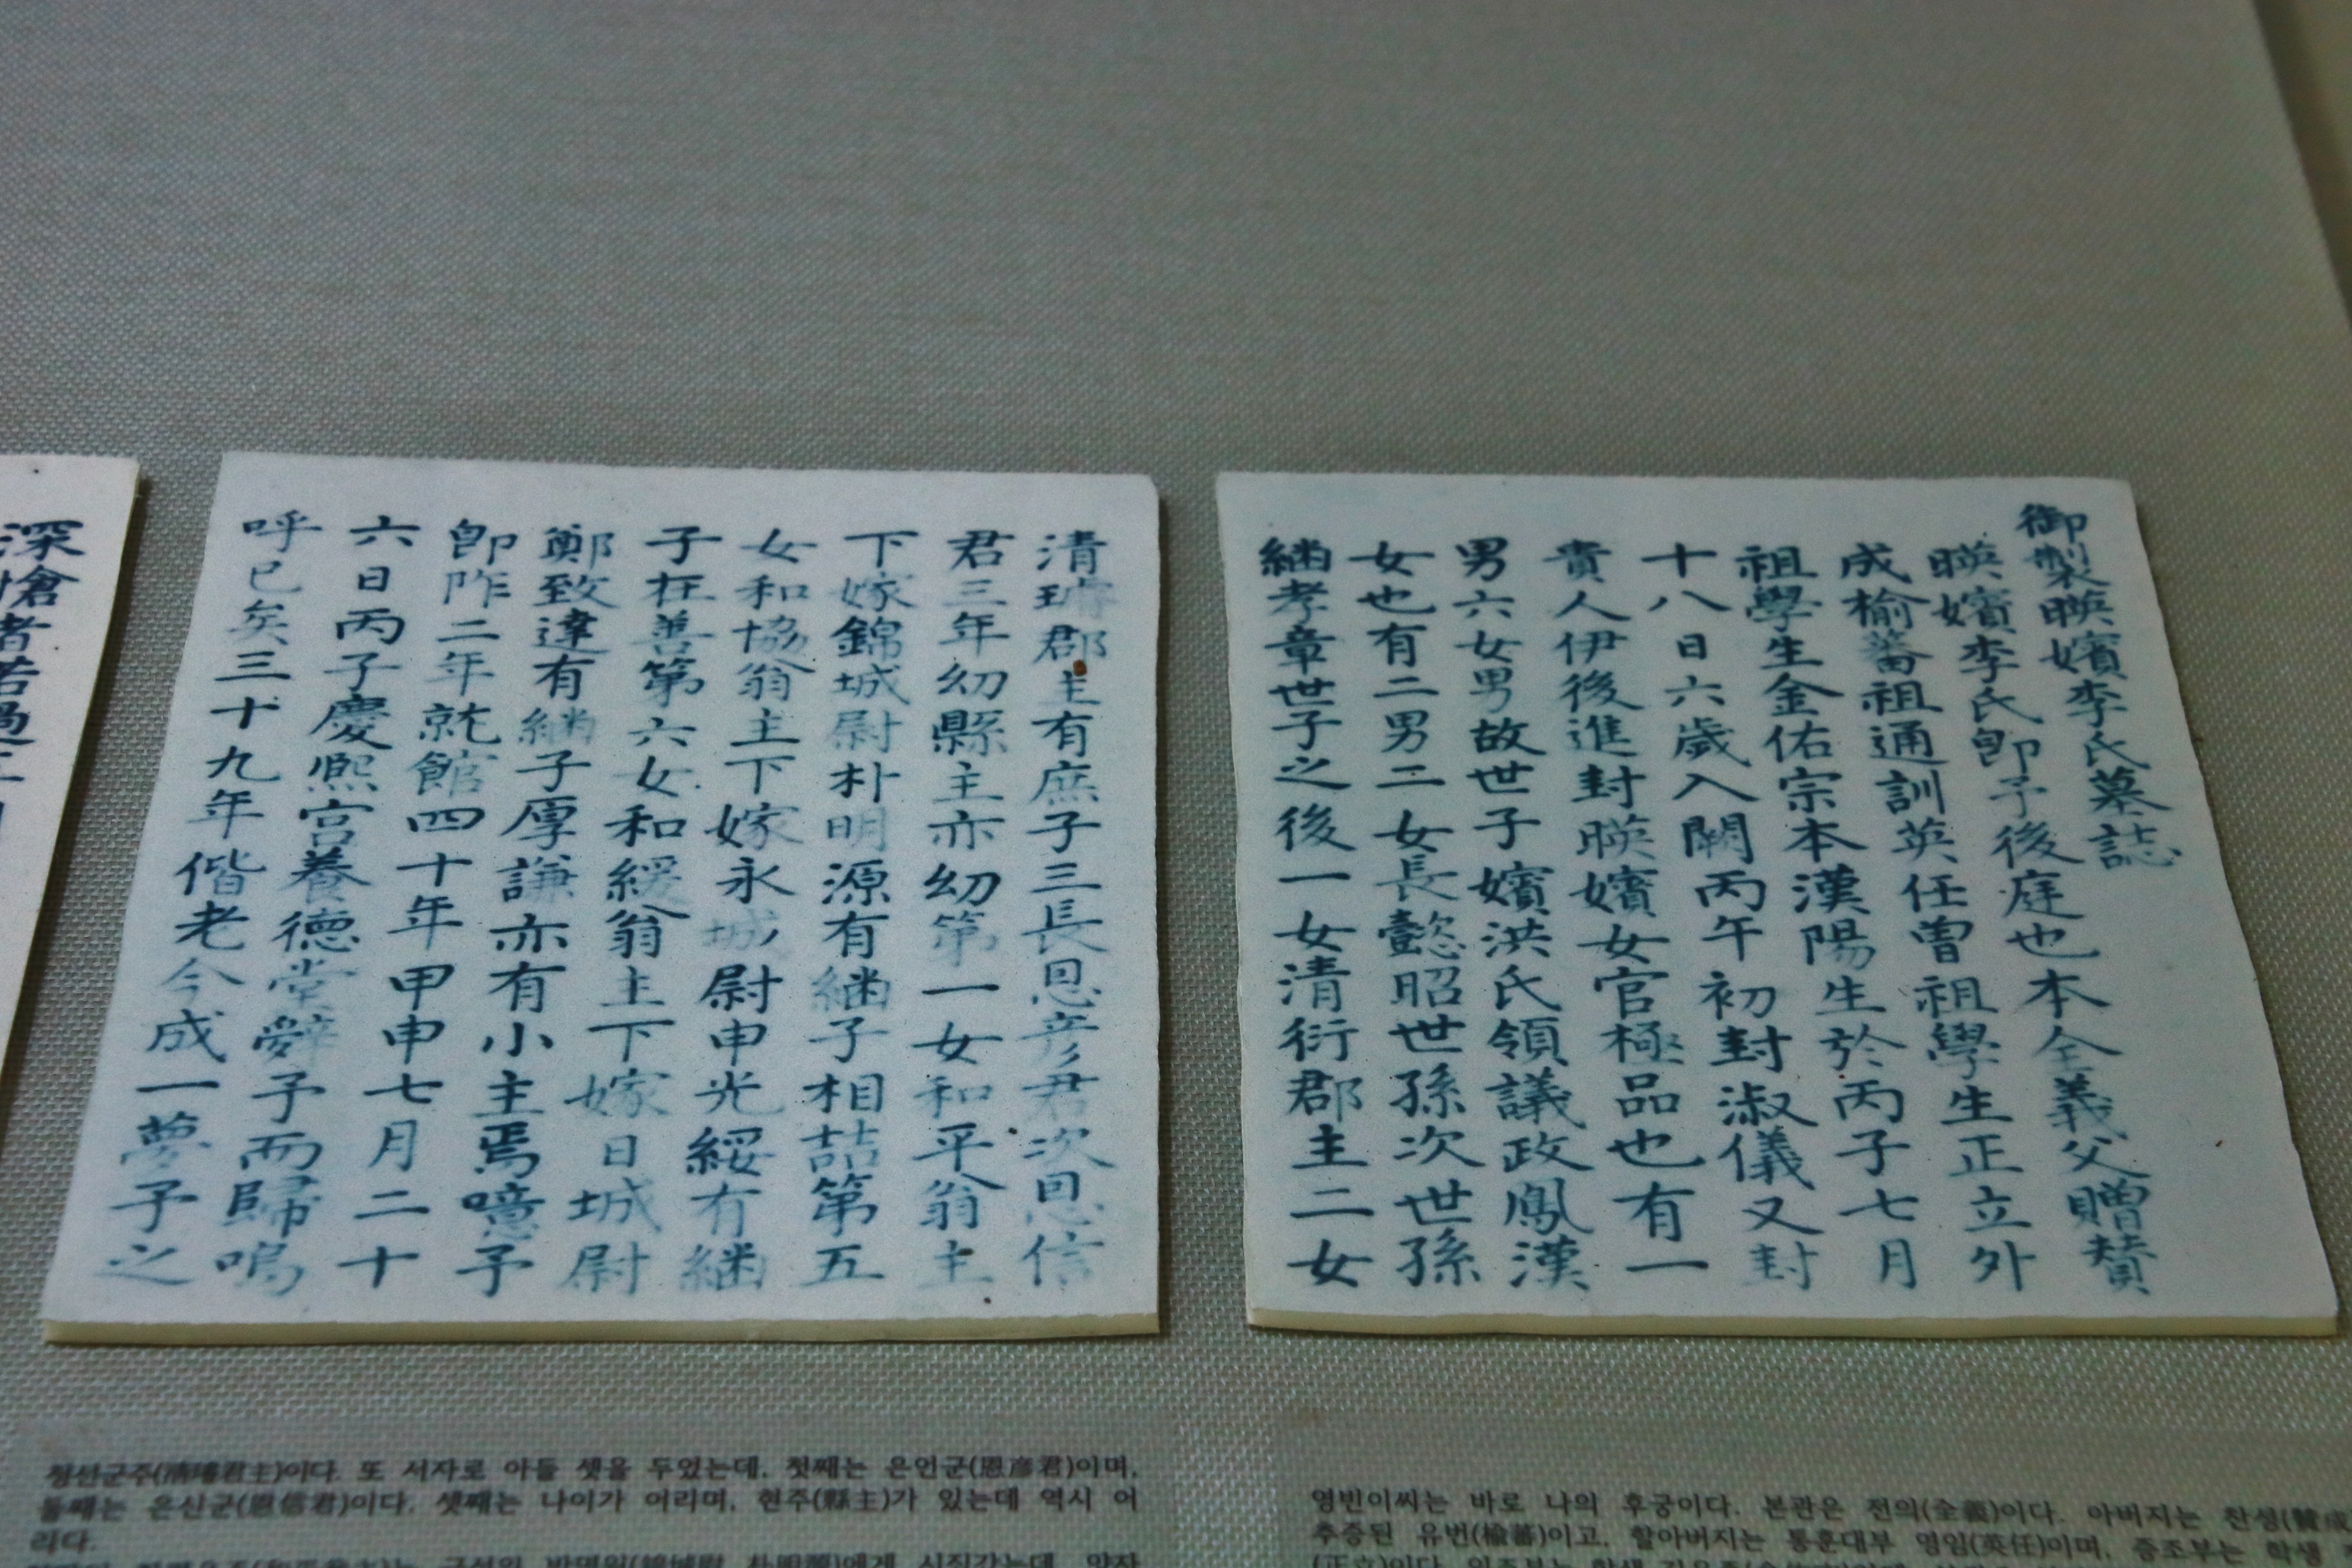 御製暎嬪李氏墓誌
暎嬪李氏卽予後庭也本全義父贈賛
成楡蕃祖通訓英任曾祖學生正立外
祖學生金佑宗本漢陽生於丙子七月
十八日六歲入闕丙午初封淑儀又封
貴人伊後進封暎嬪女官極品也有一
男六女男故世子嬪洪氏領議政鳳漢
女也有二男二女長懿昭世孫次世孫
継孝章世子之後一女清衍郡主二女
清璿郡主有庶子三長恩彦君次恩信
君三年幼縣主亦幼第一女和平翁主
下嫁錦城尉朴明源有継子相喆第五
女和協翁主下嫁永城尉申光綏有継
子在善第六女和緩翁主下嫁日城尉
鄭致達有継子厚謙亦有小主焉噫予
卽阼二年就館四十年甲申七月二十
六日丙子慶熈宮養德堂辭予而歸嗚
呼已矣三十九年偕老今成一夢予之
深愴者若過
청선군주(清璿君主)이다. 또 서자로 아들 셋을 두었는데, 첫째는 은언군(恩彦君)이며,
둘째는 은신군(恩信君)이다. 셋째는 나이가 어리며, 현주(縣主)가 있는데 역시 어
리다.
영빈이씨는 바로 나의 후궁이다. 본관은 전의(全義)이다. 아버지는 찬성(贊成
추증된 유번(楡蕃)이고, 할아버지는 통훈대부 영임(英任)이며, 증조부는 학생